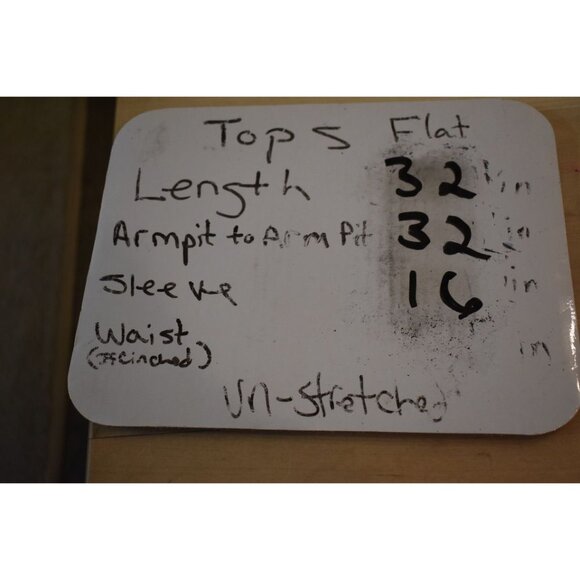 Tops Flat
Length 32 in
Armpit to Arm Pit 32 in
Sleeve 16 in
Waist in
(If Cinched)
Un-stretched